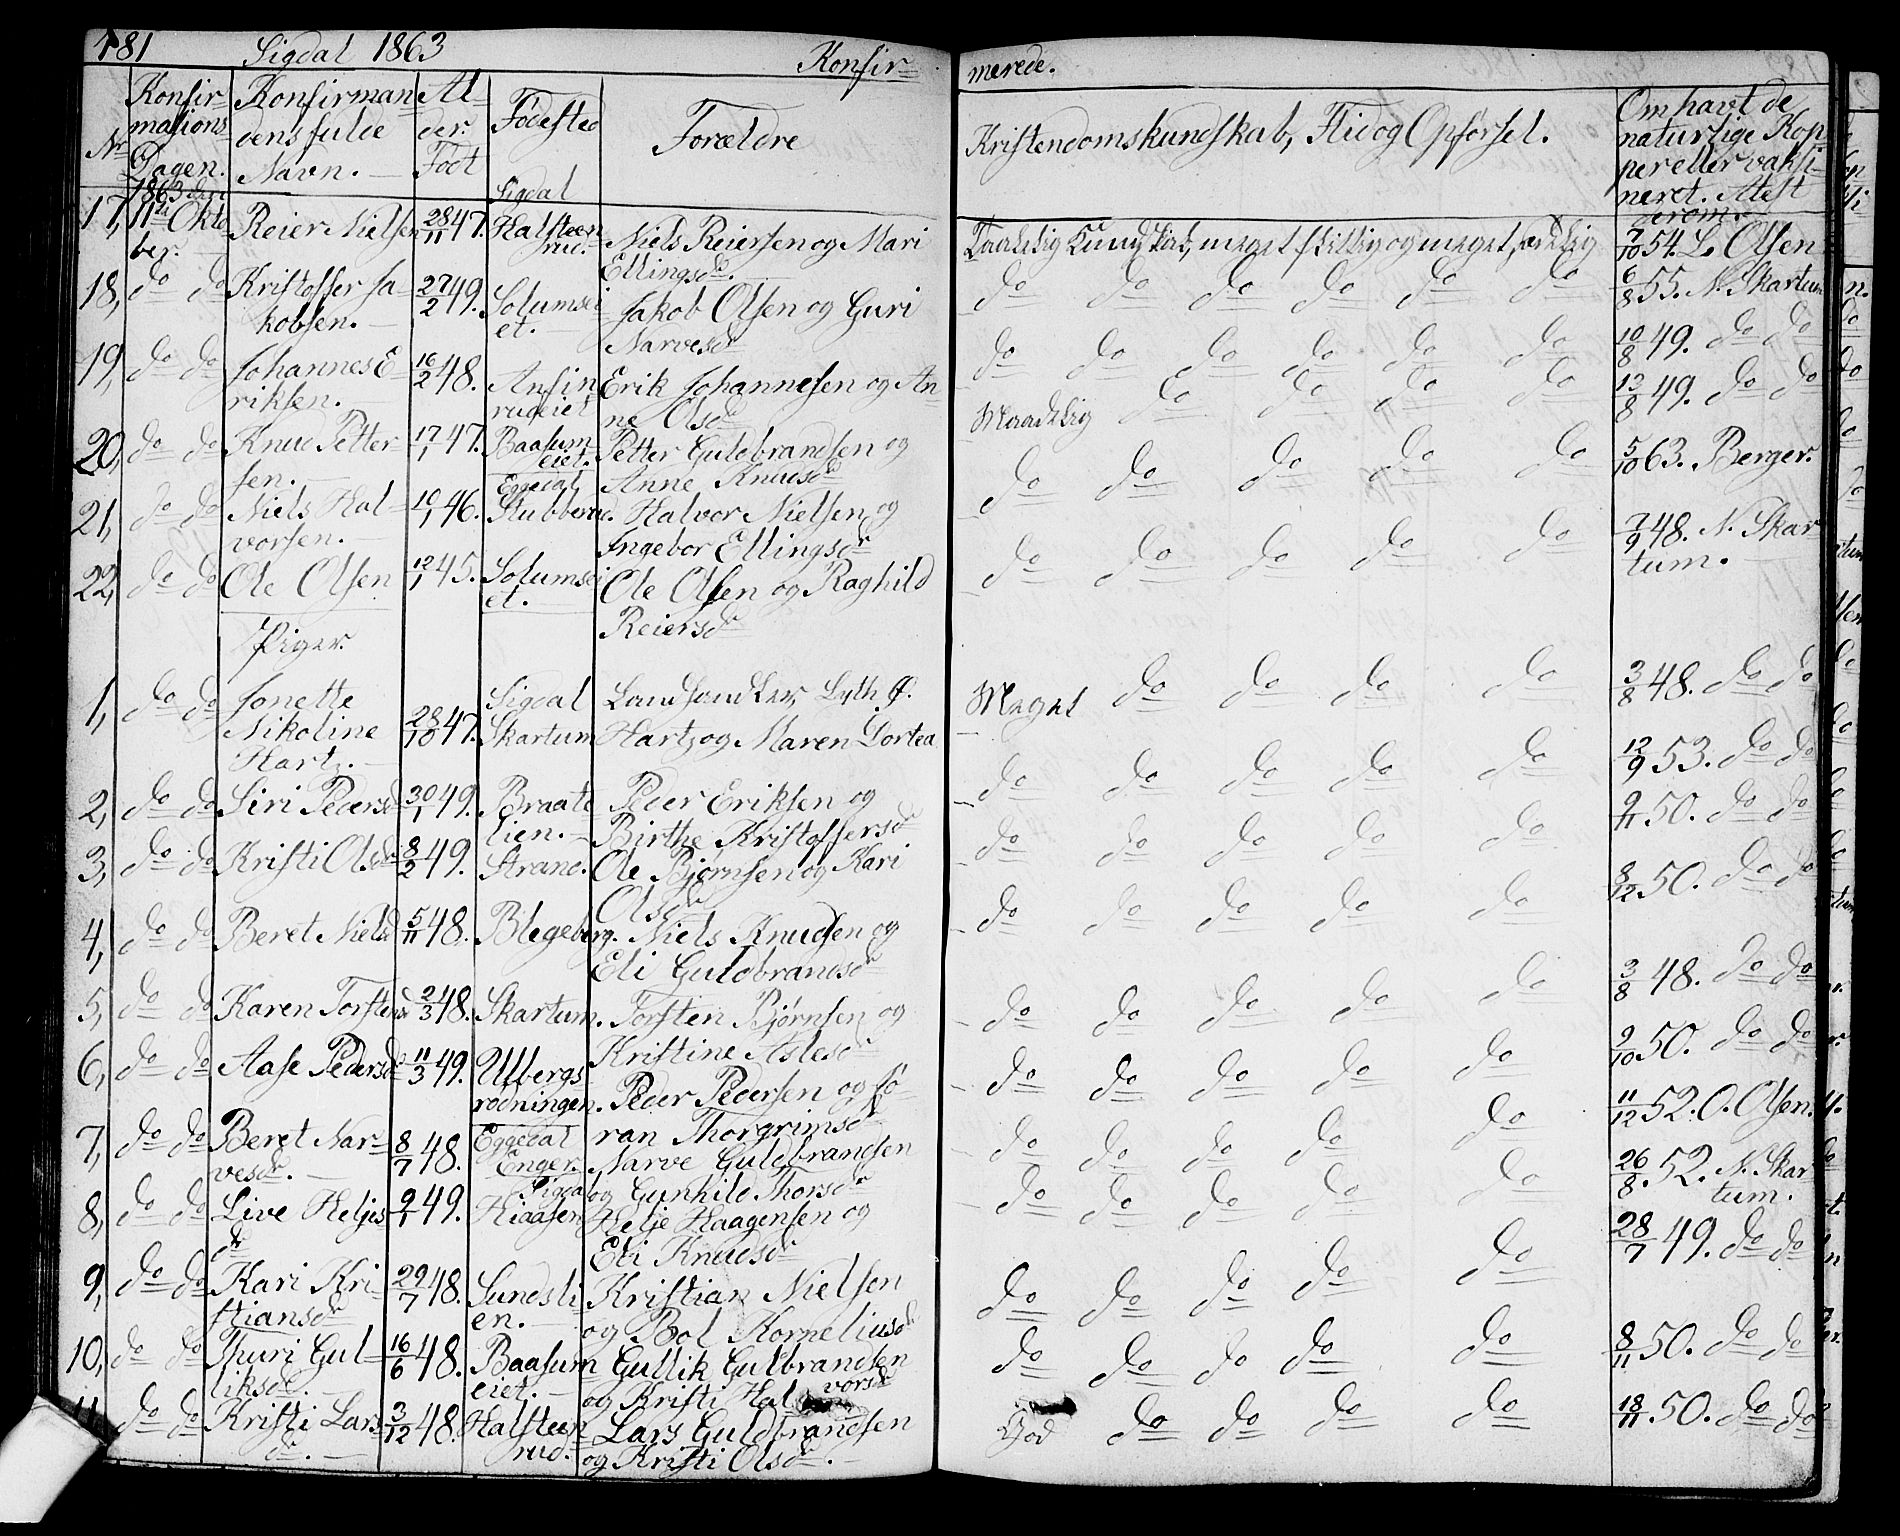 181 Sigdal 1863 Konfir=
merede.
No Konfir=
mations
Dagen. Konfirman
dens fulde
Navn. Al=
der.
Født Fødested Forældre
Kristendomskundskab, Flid og Opførsel. Om havt de
naturlige Kop
per eller vaksi=
neret. Atest
derom.
1863 den Sigdal
17, 11te Okto Reier Nielsen 28/11 47. Halsteen Niels Reiersen og Mari
ber. rud. Ellingsdr
meget skikkelig og meget 7/10 54. L. Olsen
18, do do Kristoffer Ja= 27/2 49. Solumsei Jakob Olsen og Guri
kobsen. et. Narvesdr
do do do do do do 6/8 55. N. Skartum
19, do do Johannes E 16/2 48. Ansin Erik Johannesen og An=
riksen. rudeiet ne Olsdr
do do do do do do 10/8 49. do do
20, do do Knud Petter= 17/1 47. Baasum Petter Guldbrandsen og
sen. eiet. Anne Knudsdr
Maadelig do do do do 13/8 49. do do
Eggedal
21, do do Niels Hal= 10/1 46. Stubberud. Halvor Nielsen og
vorsen. Ingebor Ellingsdr
do do do do do 5/10 63. Berger.
22, do do Ole Olsen 12/1 45. Solumsei Ole Olsen og Raghild
et. Reiersdr
do do do do do 7/9 48. N. Skar
tum.
Piger.
1, do do Jonette Sigdal Landhandler, Lyth. J.
Nikoline 28/10 47. Skartum Hartz og Maren Dortea
Hartz.
Meget do do do do 3/8 48. do do
2, do do Siri Pedersd 30/1 49. Braate Peder Eriksen og
lien. Birthe Kristoffersdr
do do do do do 12/9 53. do do
3, do do Kristi Olsdr 8/2 49. Strand. Ole Bjørnsen og Kari
Olsdr
do do do do do 9/11 50. do do
4, do do Beret Nielsd 5/11 48. Blegeberg. Niels Knudsen og
Eli Guldbrandsdr
do do do do do 8/12 50. do do
5, do do Karen Torstensd 21/3 48. Skartum. Torsten Bjørnsen og
Kristine Aslesdr
do do do do do 3/8 48. do do
6, do do Aase Pedersdr 11/3 49. Ulbergs
rødningen. Peder Pedersen og Jø=
ran Thorgrimsdr
do do do do do 9/10 50. do do
7, do do Beret Nar= 8/7 48. Eggedal
vesdr. Enger. Narve Guldbrandsen
og Gunhild Thorsdr
do do do do do 11/12 52. O. Olsen.
Sigdal
8, do do Live Heljes 9/1 49. Kiaasen Helje Haagensen og
dr Eli Knudsdr
do do do do do 26/8. 52. N. Skar
tum.
9, do do Kari Kri= 29/7 48. Sundsli Kristian Nielsen
stiansdr en. og Bol Korneliusdr
do do do do do 28/7 49. do do
10, do do Thuri Gul= 16/6 48. Baasum Gullik Gulbrandsen
liksdr. eiet. og Kristi Halvorsdr
do do do do do 8/11 50. do do
11, do do Kristi Lars 3/12 48. Halsteen Lars Guldbrandsen
dr. rud. og Kristi Olsdr.
God do do do do 18/11. 50. do do